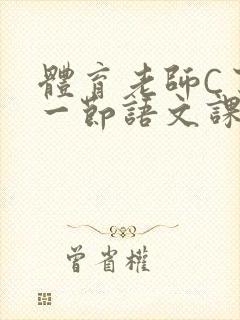 體育老師C了
一節語文課
曾省權